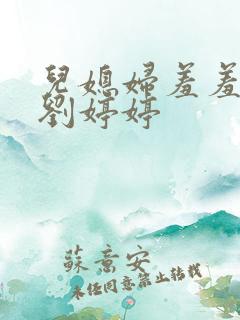 兒媳婦羞羞
劉婷婷
蘇意安
未經同意禁止轉載